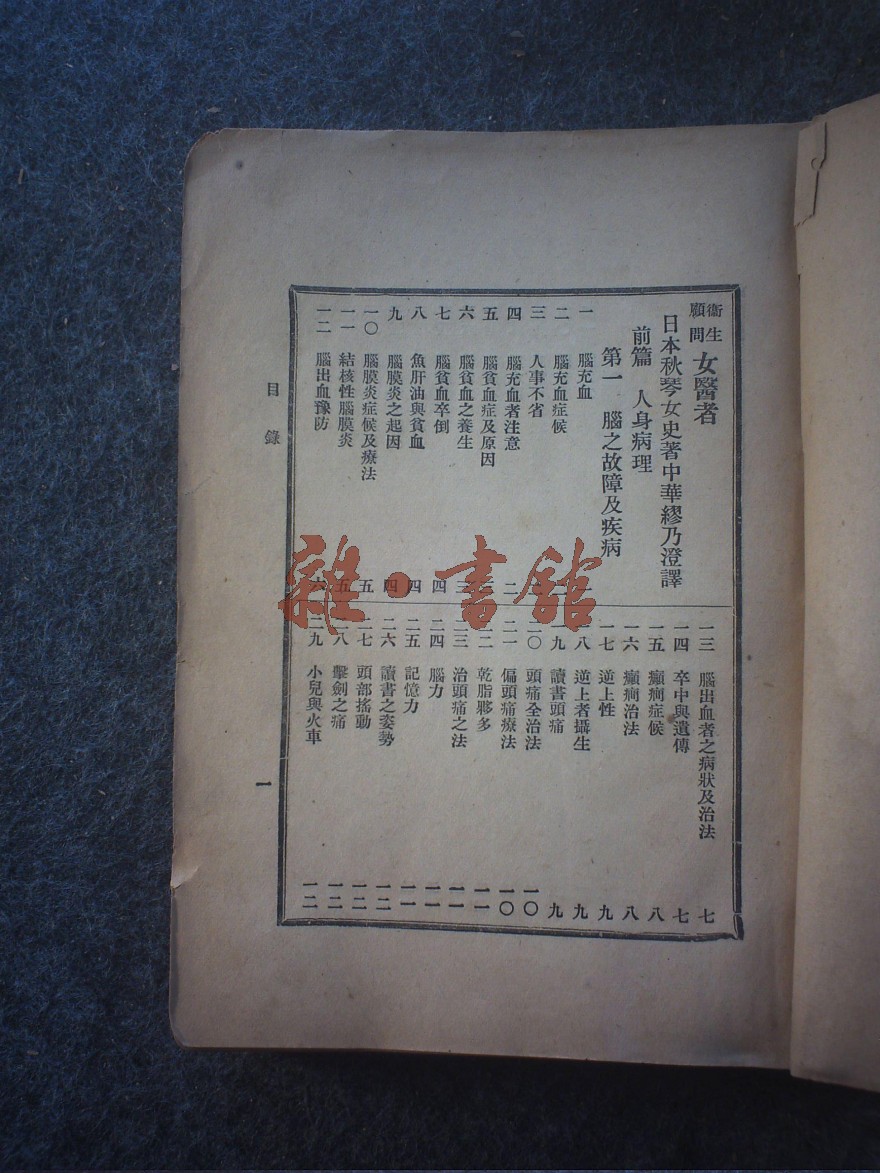 衞生顧問 女醫者
日本秋琴女史著中華繆乃澄譯
前篇 人身病理
第一 腦之故障及疾病
一 腦充血
二 腦充血症候
三 人事不省
四 腦充血者注意 二
五 腦貧血症及原因
六 腦貧血之養生 三
七 腦貧血卒倒 四
八 魚肝油與貧血 四
九 腦膜炎之起因 四
一〇 腦膜炎症候及療法 五
一一 結核性腦膜炎 五
一二 腦出血豫防 六
一三 腦出血者之病狀及治法 七
一四 卒中與遺傳 七
一五 癲癎症候 八
一六 癲癎治法 八
一七 逆上性 九
一八 逆上者攝生 九
一九 讀書頭痛 九
二〇 頭痛全治法 一〇
二一 偏頭痛療法 一〇
二二 乾脂夥多 一一
二三 治頭痛之法 一一
二四 腦力 一一
二五 記憶力 一一
二六 讀書之姿勢 一二
二七 頭部搖動 一二
二八 擊劍之痛 一二
二九 小兒與火車 一二
目錄
一
雜·書館